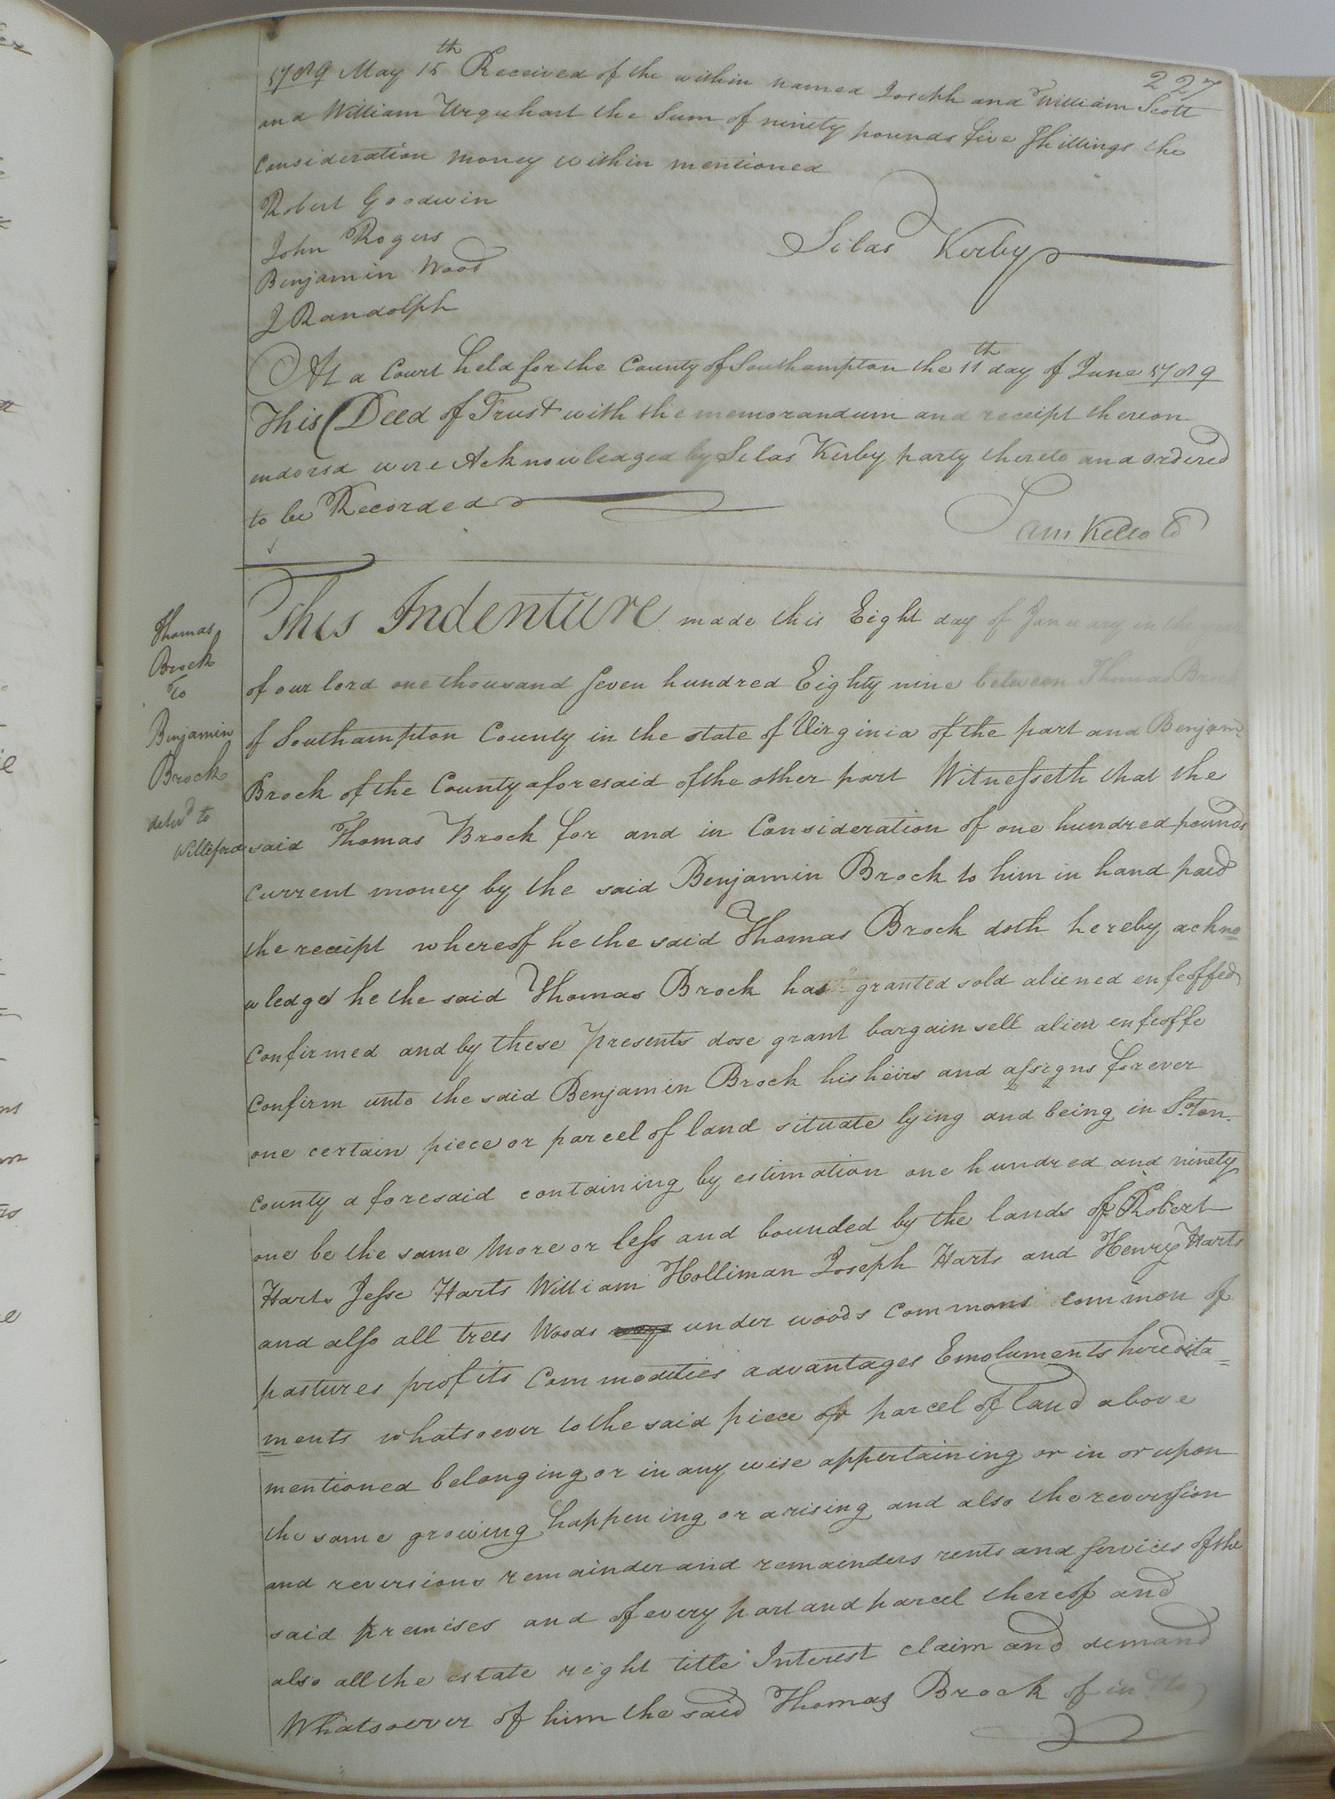 227
1789 May 15th Received of the within named Joseph and William Scott
and William Urquhart the Sum of ninety pounds five Shillings the
Consideration money within mentioned
Robert Goodwin
John Rogers
Silas Kerby
Benjamin Wood
J Randolph
At a Court held for the County of Southampton the 11th day of June 1789
This Deed of Trust with the memorandum and receipt thereon
endorsd were Acknowledged by Silas Kerby party thereto and ordered
to be Recorded
Sam Kello
Thomas
Brock
To
Benjamin
Brock
delivd to
Willeford
This Indenture made this Eight day of January in the year
of our lord one thousand seven hundred Eighty nine between Thomas Brock
of Southampton County in the state of Virginia of the part and Benjamn
Brock of the County aforesaid of the other part Witnesseth that the
said Thomas Brock for and in Consideration of one hundred pounds
Current money by the said Benjamin Brock to him in hand paid
the receipt whereof he the said Thomas Brock doth hereby ackno
wledged he the said Thomas Brock has granted sold aliened enfeoffed
Confirmed and by these presents dose grant bargain sell alien enfeoffe
Confirm unto the said Benjamin Brock his heirs and assigns forever
one certain piece or parcel of land situate lying and being in S.ton
County aforesaid containing by estimation one hundred and ninety
one be the same more or less and bounded by the lands of Robert
Harts Jesse Harts William Holliman Joseph Harts and Henry Harts
and also all trees Woods under woods Commons common of
pastures profits Commodities advantages Emoluments heredita=
ments whatsoever to the said piece or parcel of land above
mentioned belonging or in any wise appertaining or in or upon
the same growing happening or arising and also the reversion
and reversions remainder and remainders rents and services of the
said premises and of every part and parcel thereof and
also all the estate right title Interest claim and demand
Whatsoever of him the said Thomas Brock of in